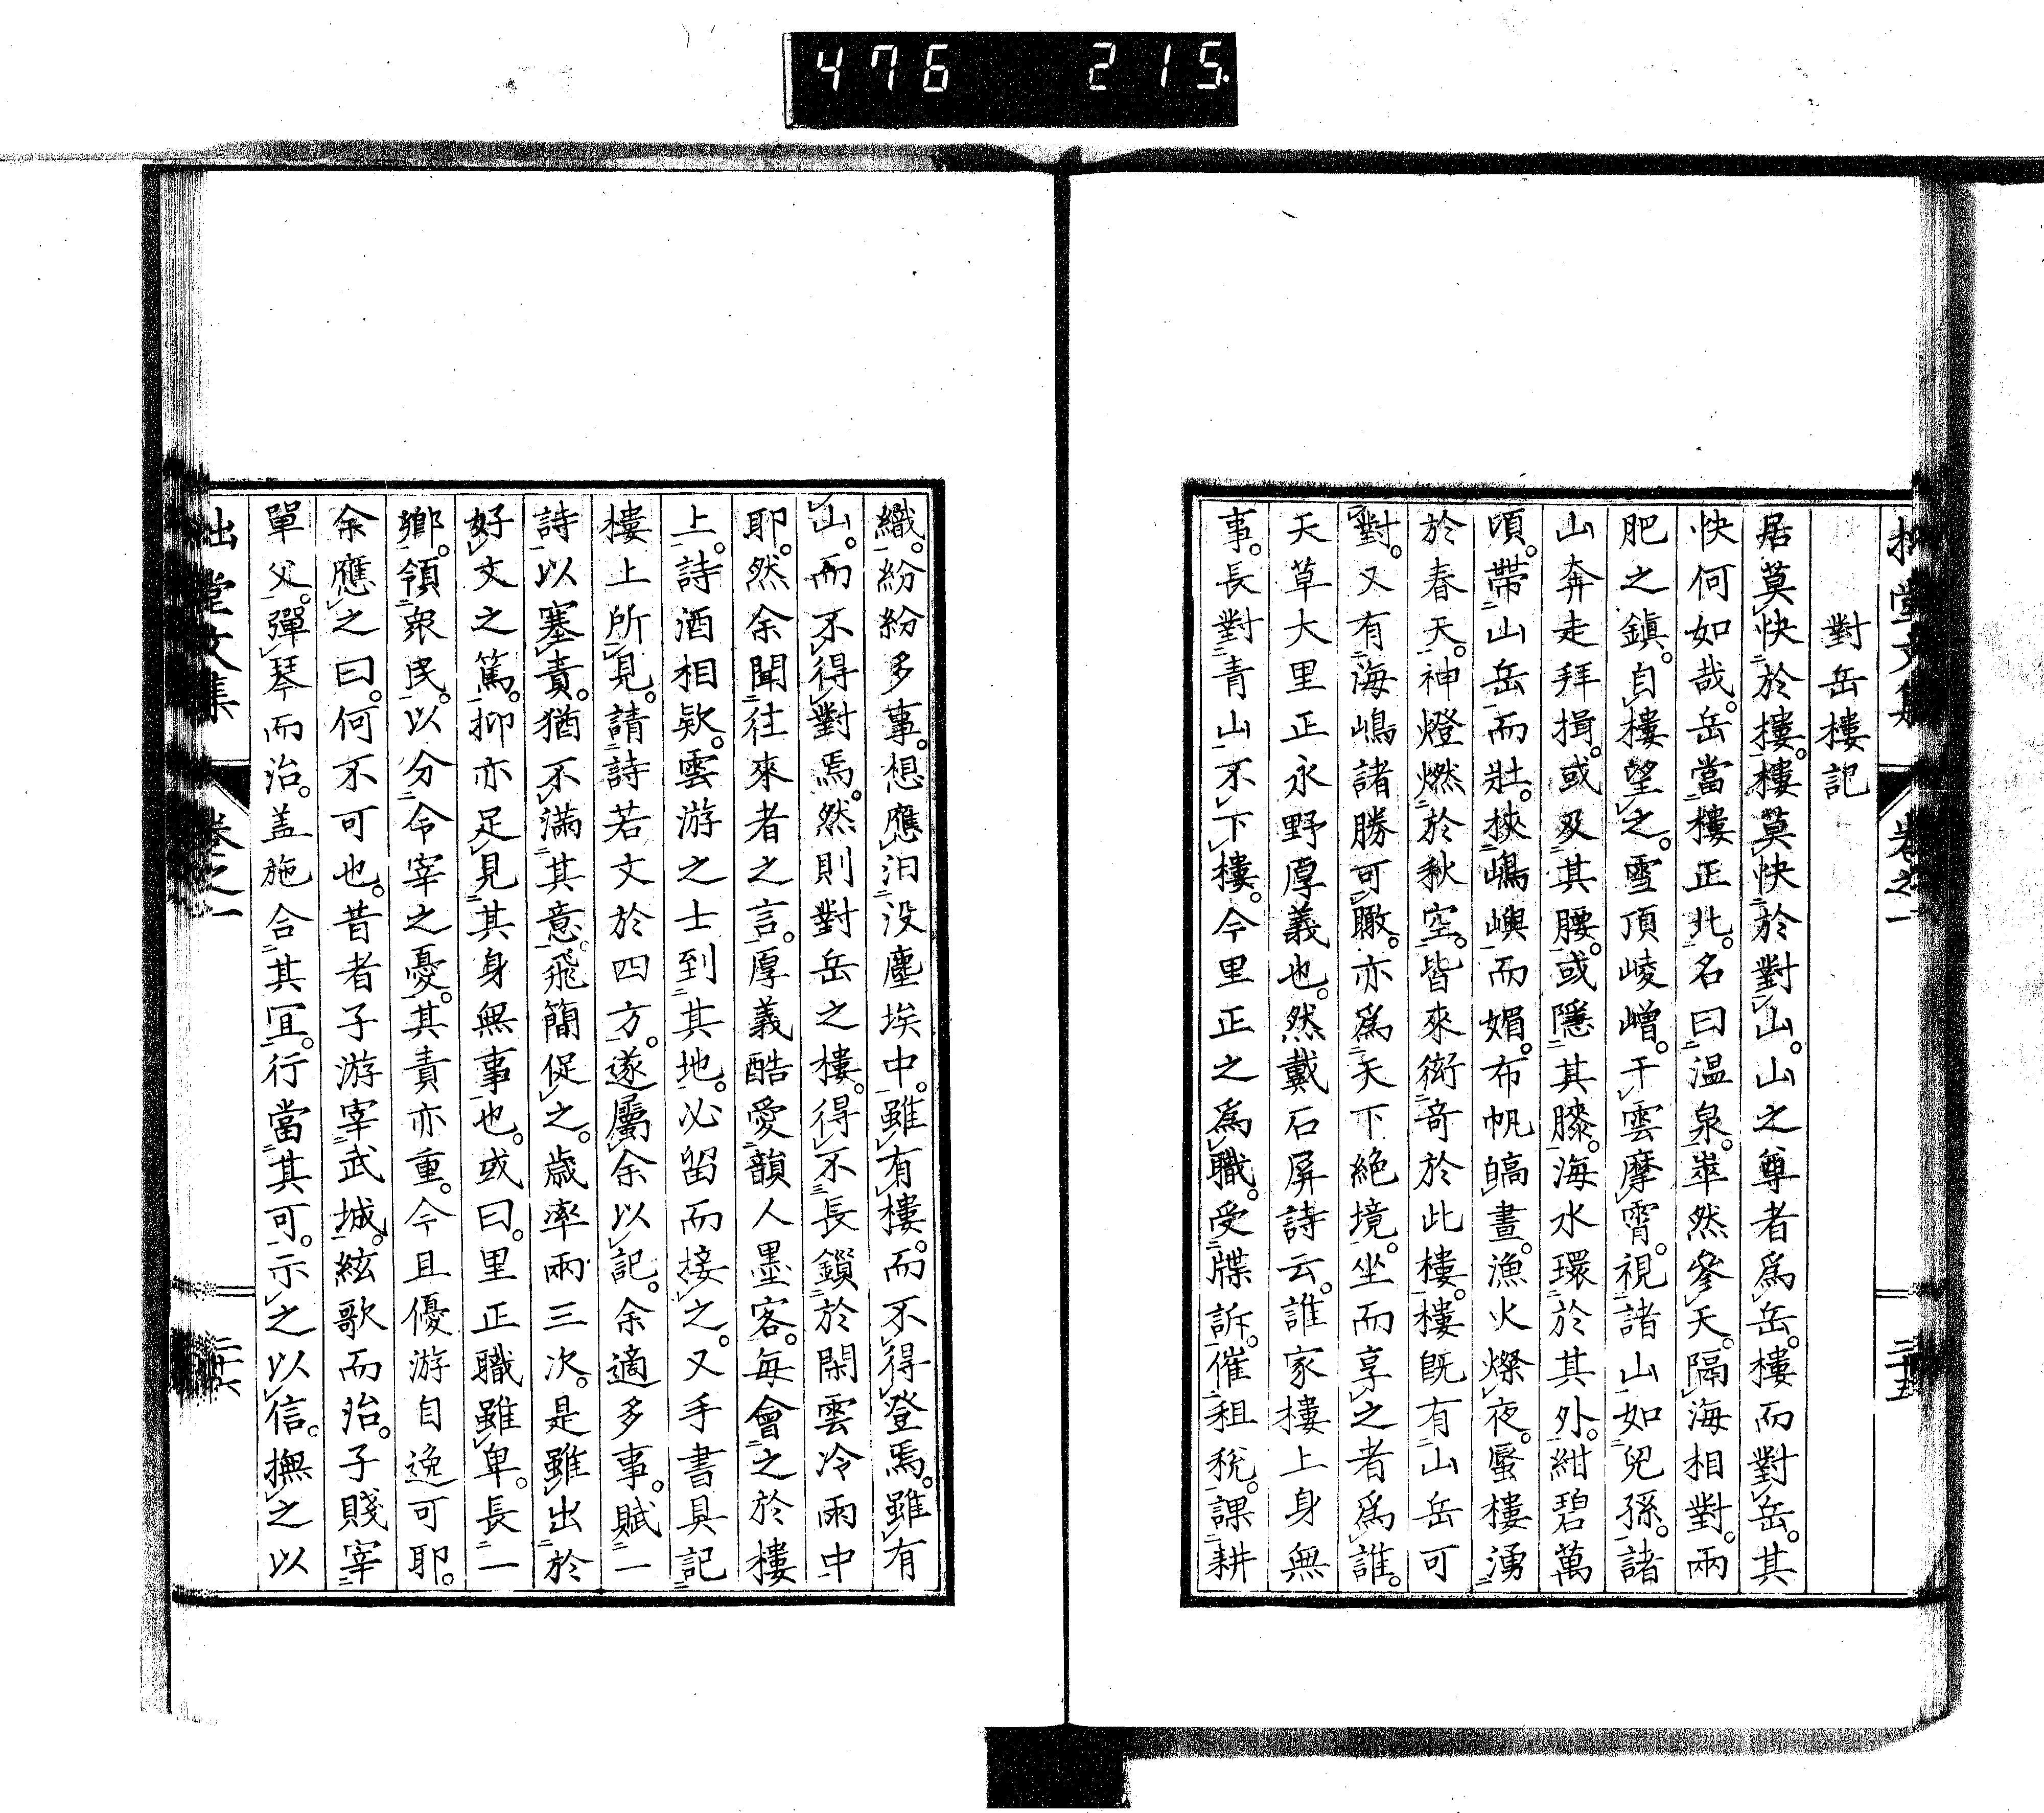 476 215
拙堂文集 卷之一 二十五
對岳樓記
居莫快於樓。樓莫快於對山。山之尊者爲岳。樓而對岳。其
快何如哉。岳當樓正北。名曰温泉。崒然參天。隔海相對。兩
肥之鎭。自樓望之。雪頂崚嶒。干雲摩霄。視諸山如兒孫。諸
山奔走拜揖。或及其腰。或隱其膝。海水環於其外。紺碧萬
頃。帶山岳而壯。挾嶋嶼而媚。布帆皜晝。漁火燦夜。蜃樓湧
於春天。神燈燃於秋空。皆來衒奇於此樓。樓既有山岳可
對。又有海嶋諸勝可瞰。亦爲天下絶境。坐而享之者爲誰。
天草大里正永野厚義也。然戴石屏詩云。誰家樓上身無
事。長對青山不下樓。今里正之爲職。受牒訴。催租税。課耕
織。紛紛多事。想應汨没塵埃中。雖有樓。而不得登焉。雖有
山。而不得對焉。然則對岳之樓。得不長鎖於閑雲冷雨中
耶。然余聞往來者之言。厚義酷愛韻人墨客。每會之於樓
上。詩酒相欵。雲游之士到其地。必留而接之。又手書具記
樓上所見。請詩若文於四方。遂屬余以記。余適多事。賦一
詩以塞責。猶不滿其意。飛簡促之。歳率兩三次。是雖出於
好文之篤。抑亦足見其身無事也。或曰。里正職雖卑。長一
鄉。領衆民。以分令宰之憂。其責亦重。今且優游自逸可耶。
余應之曰。何不可也。昔者子游宰武城。絃歌而治。子賤宰
單父。彈琴而治。盖施合其宜。行當其可。示之以信。撫之以
拙堂文集 卷之一 二十六